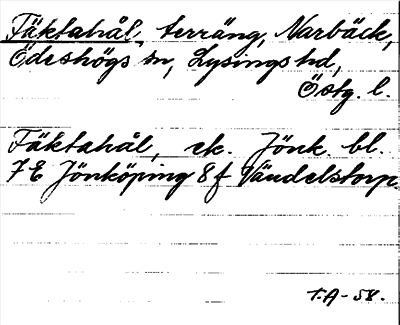 Fäktahål, terräng, Narbäck,
Ödeshögs sn, Lysings hd,
Östg. l.
Fäktahål, ek. Jönk. bl.
7E Jönköping 8f Vändelstorp.
T.A-58.